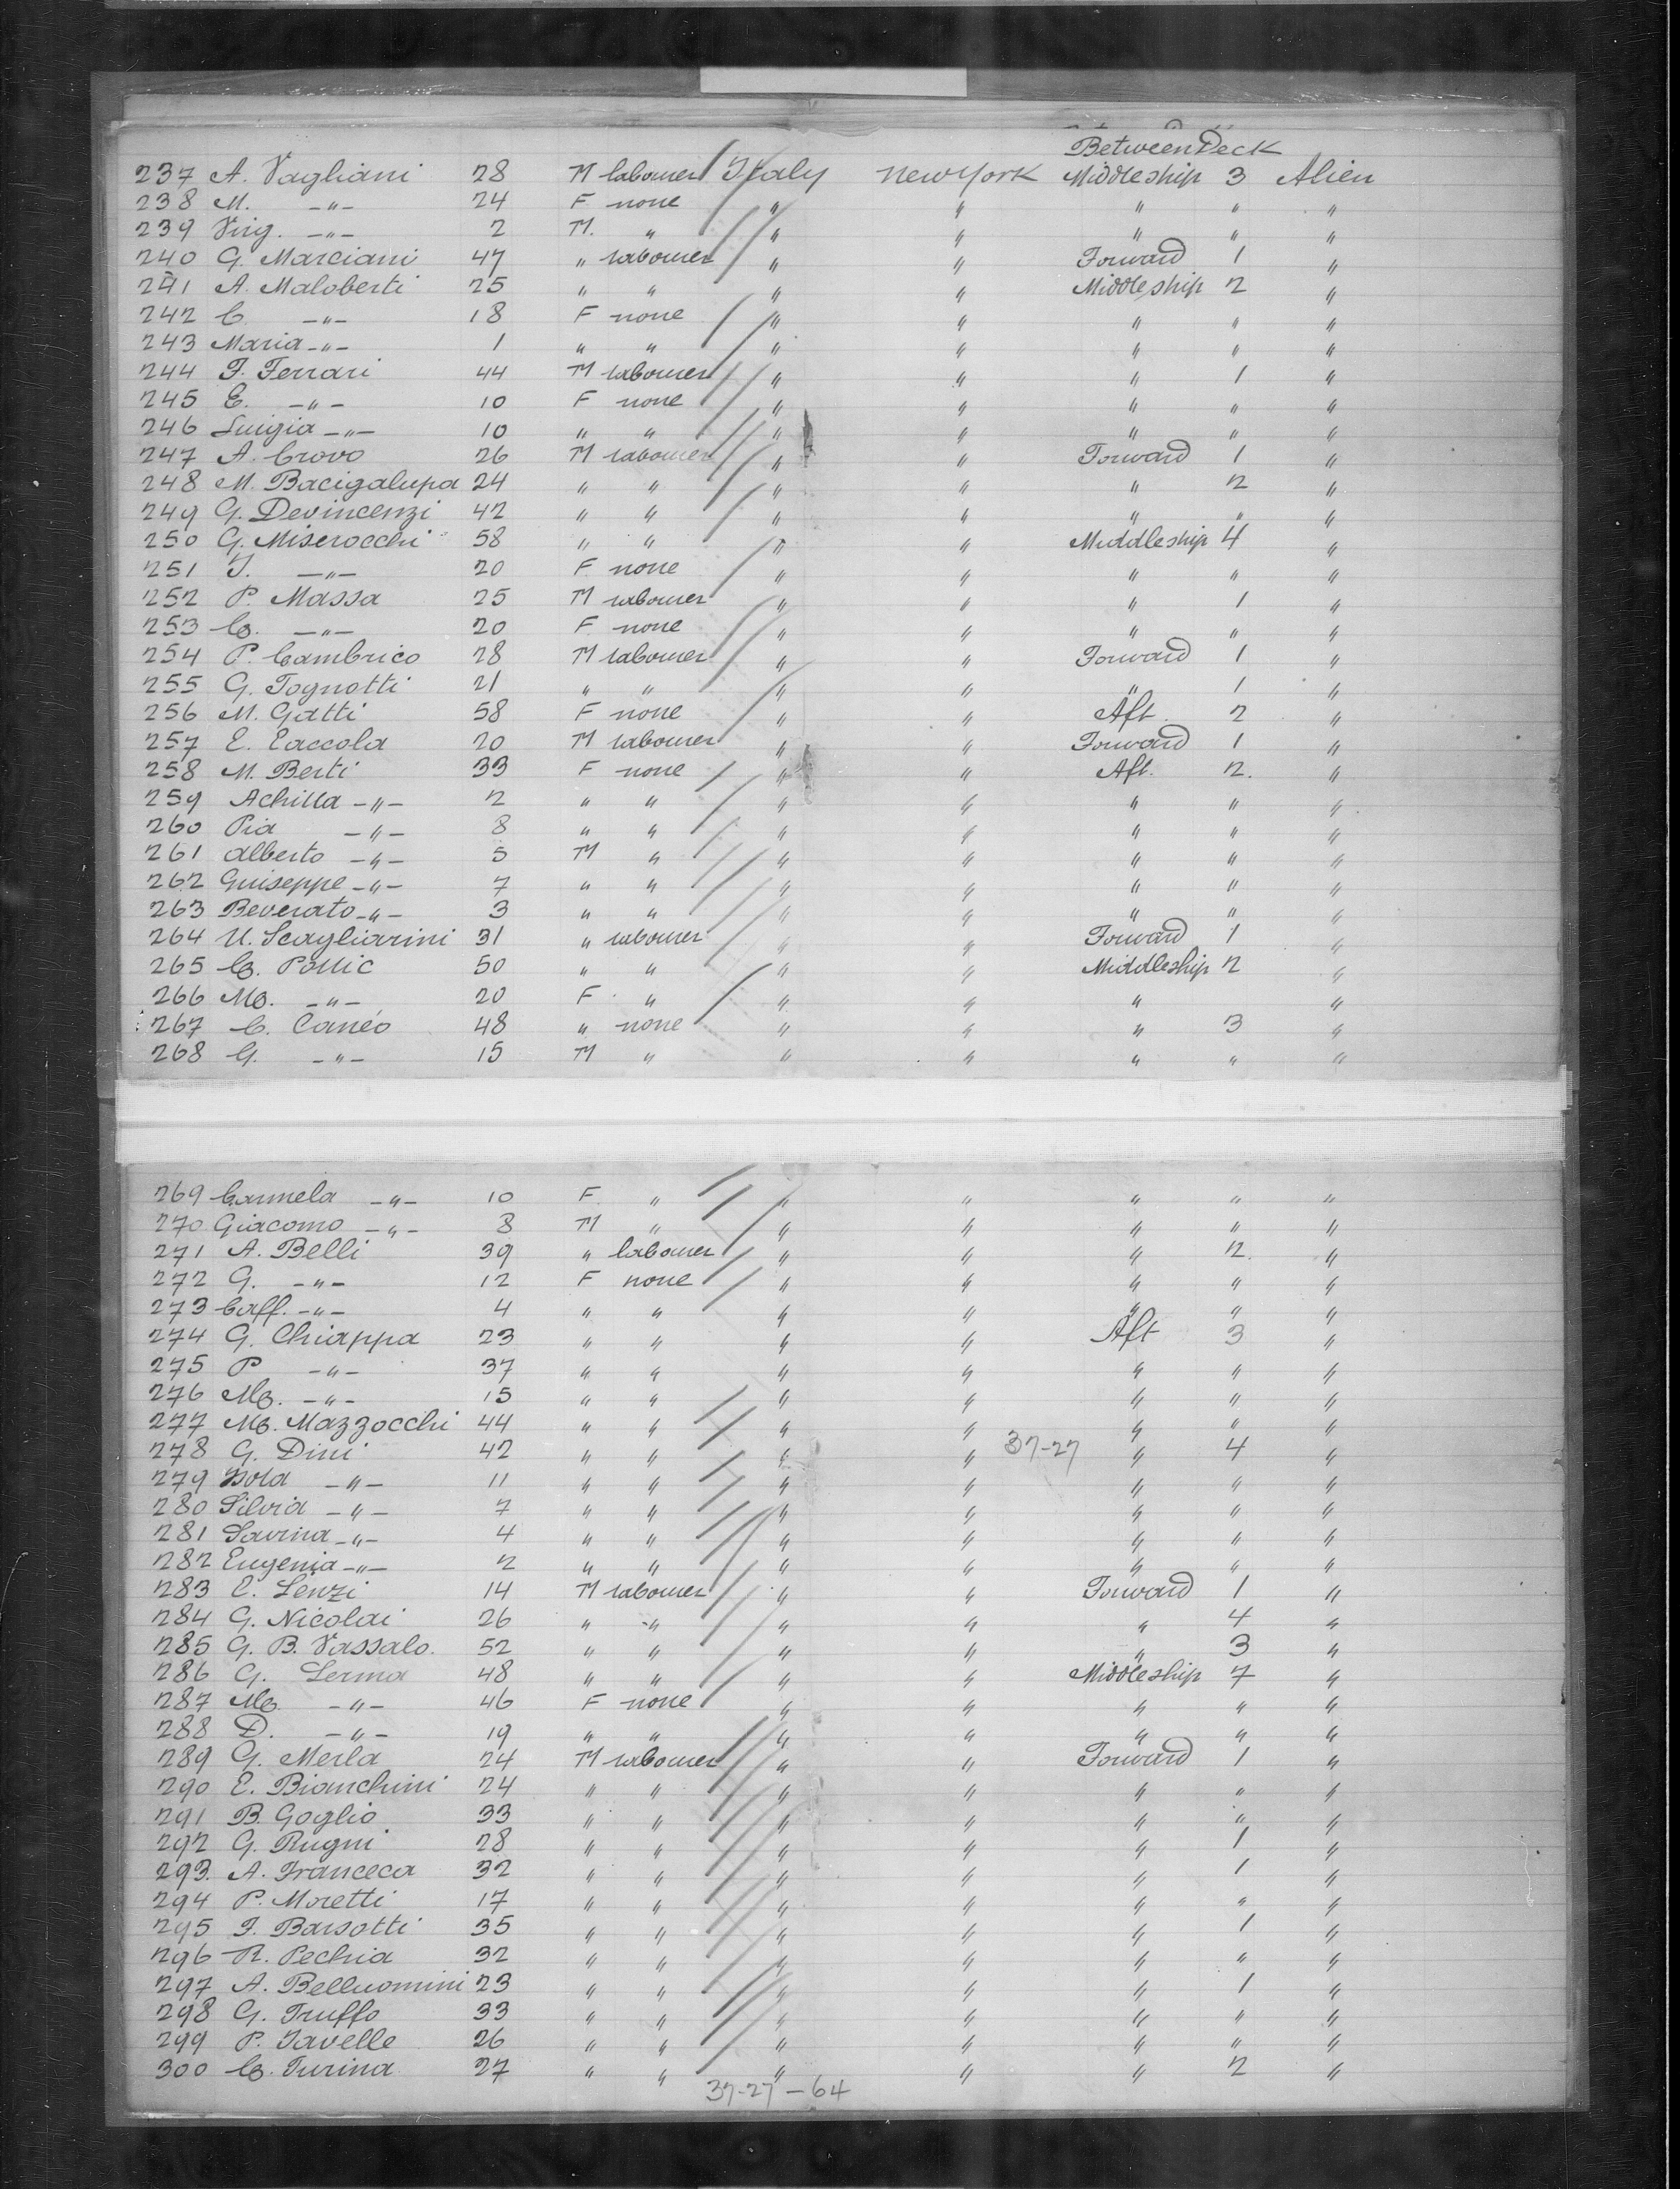 Between Deck
237 A. Vagliani 28 M labourer Italy New York Middleship 3 Alien
238 M. -"- 24 F none " " " " "
239 Virg. -"- 2 M. " " " " " "
240 G. Marciani 47 " labourer " " Forward 1 "
241 A. Maloberti 25 " " " " Middleship 2 "
242 C. -"- 18 F none " " " " "
243 Maria -"- 1 " " " " " " "
244 F. Ferrari 44 M labourer " " " 1 "
245 E. -"- 10 F none " " " " "
246 Luigia -"- 10 " " " " " " "
247 A. Crovo 26 M labourer " " Forward 1 "
248 M. Bacigalupa 24 " " " " " 2 "
249 G. Devincenzi 42 " " " " " " "
250 G. Miserocchi 58 " " " " Middleship 4 "
251 I. -"- 20 F none " " " " "
252 P. Massa 25 M labourer " " " 1 "
253 C. -"- 20 F none " " " " "
254 P. Cambrico 28 M labourer " " Forward 1 "
255 G. Tognotti 21 " " " " " 1 "
256 M. Gatti 58 F none " " Aft 2 "
257 E. Eaccola 20 M labourer " " Forward 1 "
258 M. Berti 33 F none " " Aft. 2. "
259 Achilla -"- 2 " " " " " " "
260 Pia -"- 8 " " " " " " "
261 Alberto -"- 5 M " " " " " "
262 Guiseppe -"- 7 " " " " " " "
263 Beverato -"- 3 " " " " " " "
264 U. Scagliarini 31 " labourer " " Forward 1 "
265 C. Pollic 50 " " " " Middleship 2 "
266 M. -"- 20 F " " " " "
267 C. Canéo 48 " none " " " 3 "
268 G. -"- 15 M " " " " " "
269 Carmela -"- 10 F " " " " " "
270 Giacomo -"- 8 M " " " " " "
271 A. Belli 39 " labourer " " " 2. "
272 G. -"- 12 F none " " " " "
273 Caff. -"- 4 " " " " " " "
274 G. Chiappa 23 " " " " Aft 3 "
275 P -"- 37 " " " " " " "
276 M. -"- 15 " " " " " " "
277 M. Mazzocchi 44 " " " " " " "
278 G. Dini 42 " " " " 37-27 " 4 "
279 Isola -"- 11 " " " " " " "
280 Silvia -"- 7 " " " " " " "
281 Savina -"- 4 " " " " " " "
282 Eugenia -"- 2 " " " " " " "
283 E. Lenzi 14 M labourer " " Forward 1 "
284 G. Nicolai 26 " " " " " 4 "
285 G. B. Vassalo. 52 " " " " " 3 "
286 G. Lerma 48 " " " " Middleship 7 "
287 M. -"- 46 F none " " " " "
288 D. -"- 19 " " " " " " "
289 G. Merla 24 M labourer " " Forward 1 "
290 E. Bianchini 24 " " " " " " "
291 B. Goglio 33 " " " " " " "
292 G. Rugni 28 " " " " " 1 "
293. A. Franceca 32 " " " " " 1 "
294 P. Moretti 17 " " " " " " "
295 F. Barsotti 35 " " " " " 1 "
296 R. Pechia 32 " " " " " " "
297 A. Belluomini 23 " " " " " 1 "
298 G. Truffo 33 " " " " " " "
299 P. Iavelle 26 " " " " " " "
300 C. Turina 27 " " " " " 2 "
37-27-64